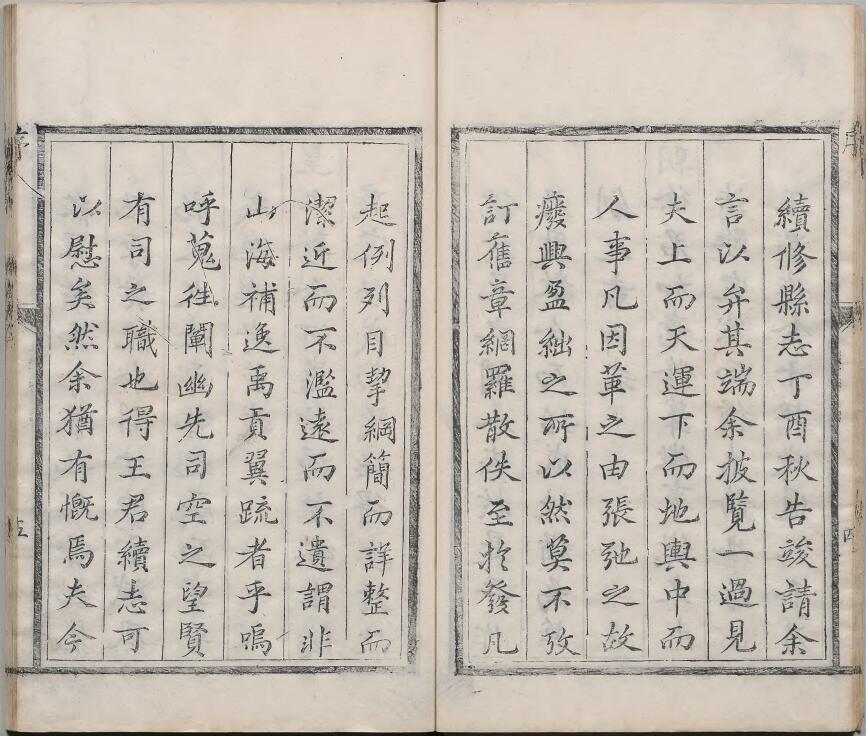 續修縣志丁酉秋告竣請余
言以弁其端余披覽一過見
夫上而天運下而地輿中而
人事凡因革之由張弛之故
癈興盈絀之所以然莫不攷
訂舊章網羅散佚至扵發凡
起例列目挈綱簡而詳整而
潔近而不濫遠而不遺謂非
山海補逸禹貢翼疏者乎嗚
呼蒐徃闡幽先司空之望賢
有司之職也得王君續志可
以慰矣然余猶有慨焉夫今